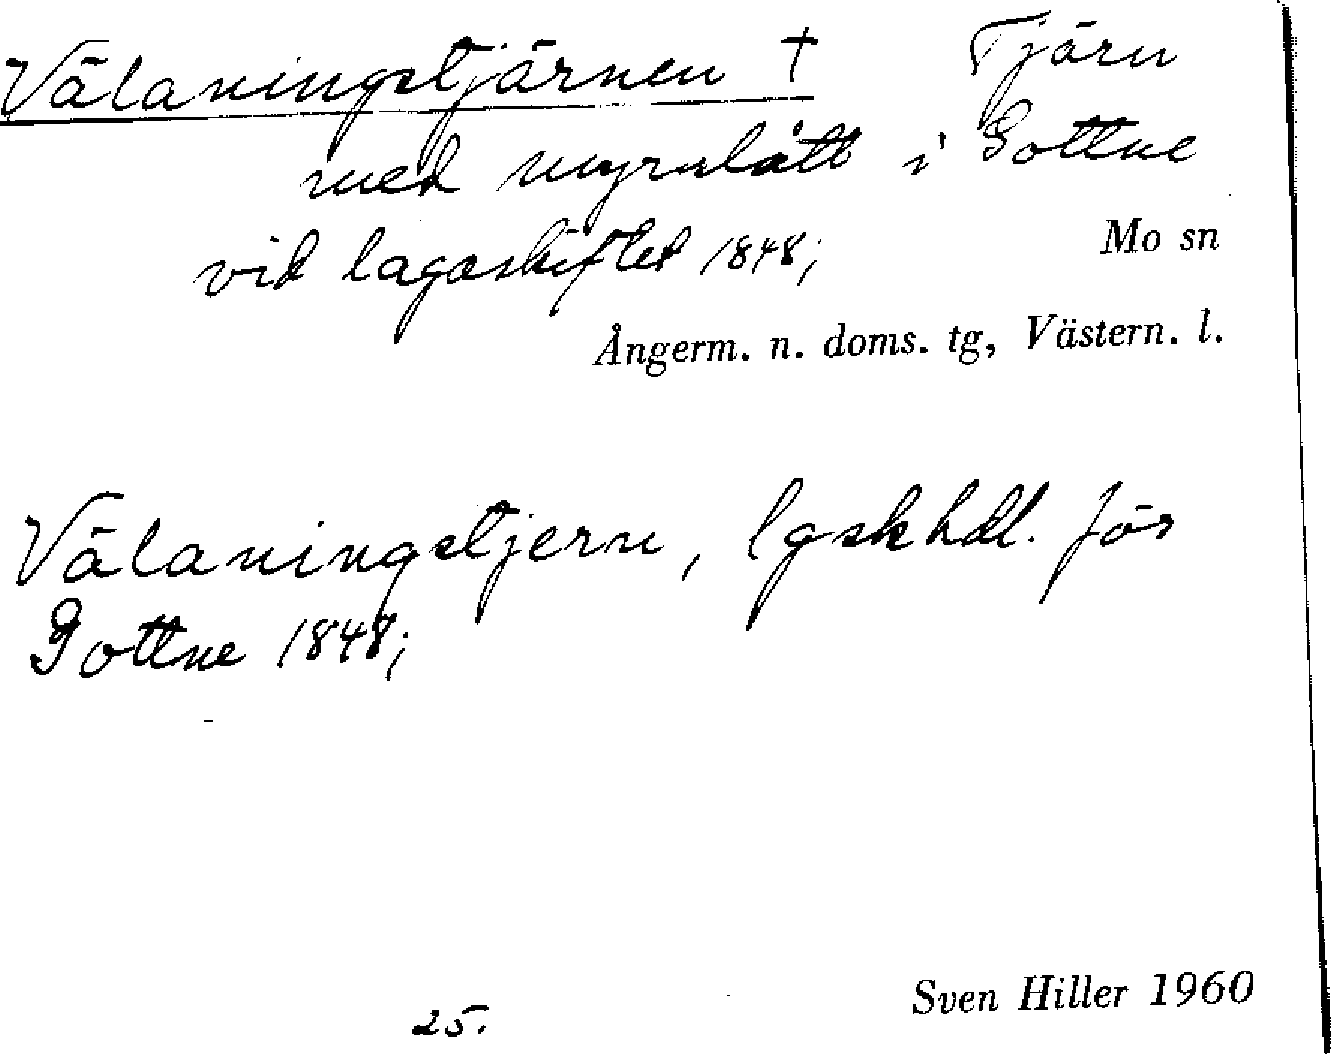 Välaningstjärnen † Tjärn
med myrslått i Gottne
vid lagaskiftet 1848;
Mo sn
Ångerm. n. doms. tg, Västern. l.
Välaningstjern, lgskhdl. för
Gottne 1848;
25.
Sven Hiller 1960